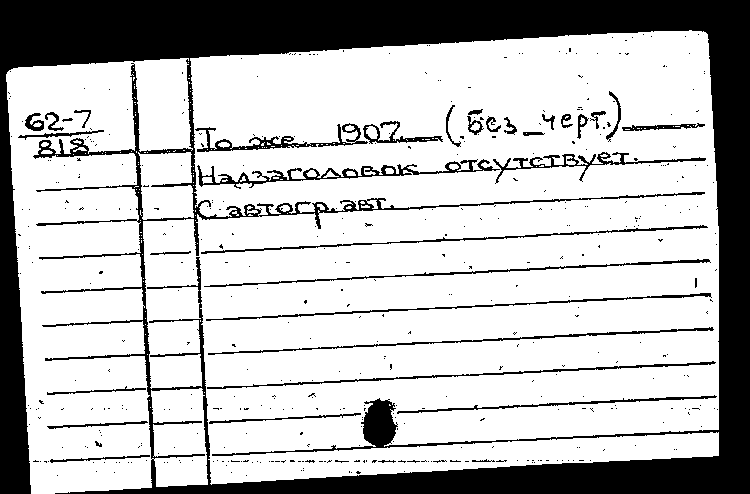 62-7
818
То же 1907 (без черт.)
Надзаголовок отсутствует.
С автогр. авт.